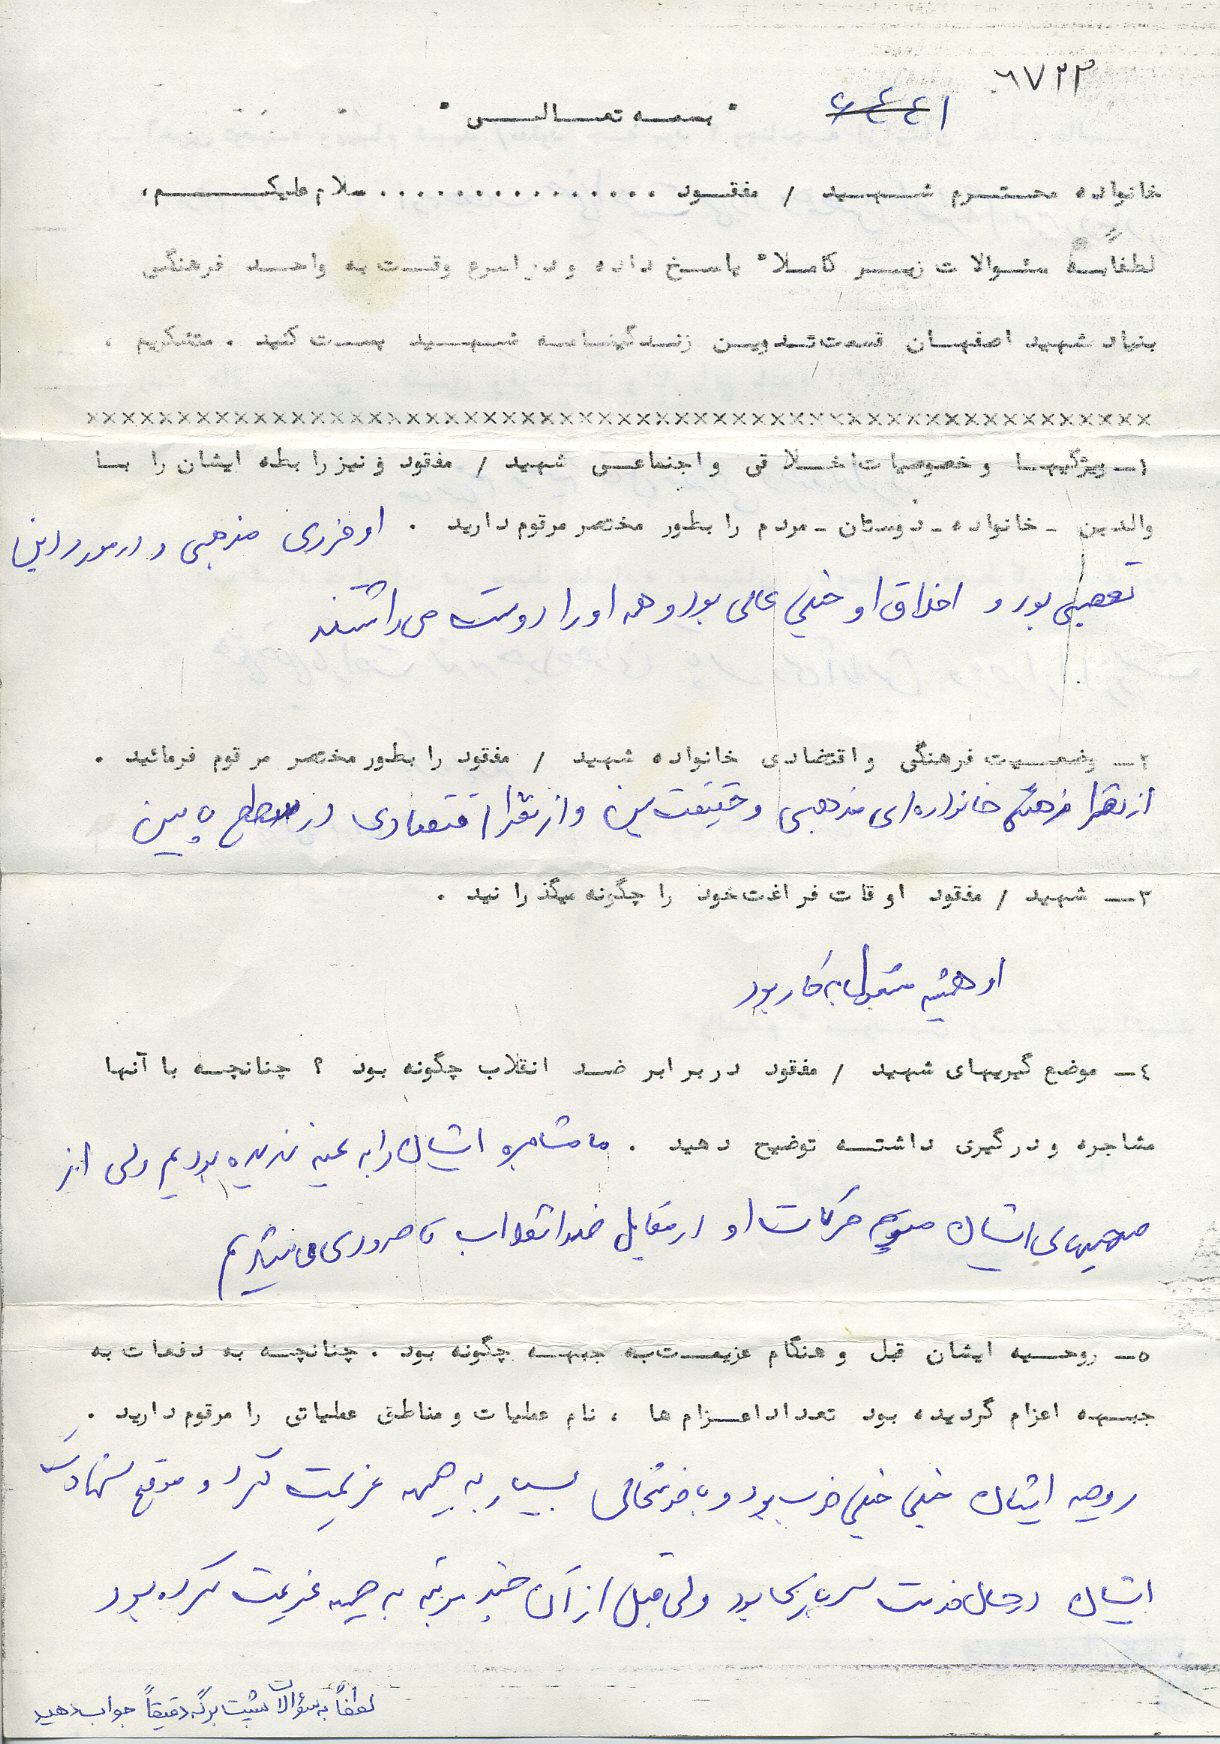 ۶۷۲۳
۶۴۴۱
" بسمه تعالی "
خانواده محترم شهید / مفقود ............... سلام علیکم،
لطفاً به سئوالات زیر کاملا" پاسخ داده و در اسرع وقت به واحد فرهنگی
بنیاد شهید اصفهان قسمت تدوین زندگینامه شهید پست کنید . متشکریم .
××××××××××××××××××××××××××××××××××××××××××××××××××××
۱ــ ویژگیها و خصوصیات اخلاقی و اجتماعی شهید / مفقود و نیز رابطه ایشان را با
والدین ـ خانواده ـ دوستان ـ مردم را بطور مختصر مرقوم دارید . او فردی مذهبی و در مورد دین
تعصبی بود و اخلاق او خیلی عالی بود و همه او را دوست می داشتند
۲ــ وضعیت فرهنگی و اقتضادی خانواده شهید / مفقود را بطور مختصر مرقوم فرمائید .
از نظر فرهنگی خانواده ای مذهبی و حقیقت بین و از نظر اقتصادی در سطح پایین
۳ــ شهید / مفقود اوقات فراغت خود را چگونه میگذرانید .
او همیشه مشغول به کار بود
٤ــ موضع گیریهای شهید / مفقود در برابر ضد انقلاب چگونه بود ؟ چنانچه با آنها
مشاجره و درگیری داشته توضیح دهید . ما مشاجره ایشان را به عینه ندیده بودیم ولی از
صحبتهای ایشان متوجه حرکات او در مقابل ضد انقلاب تا حدودی می شدیم
۵ــ روحیه ایشان قبل و هنگام عزیمت به جبهه چگونه بود . چنانچه به دفعات به
جبهه اعزام گردیده بود تعداد اعزام ها ، نام عملیات و مناطق عملیاتی را مرقوم دارید .
روحیه ایشان خیلی خیلی خوب بود و با خوشحالی بسیار به جبهه عزیمت کرد و موقع شهادت
ایشان در حال خدمت سربازی بود ولی قبل از آن چند مرتبه به جبهه عزیمت کرده بود
لطفاً به سؤالات پشت برگه دقیقاً جواب دهید